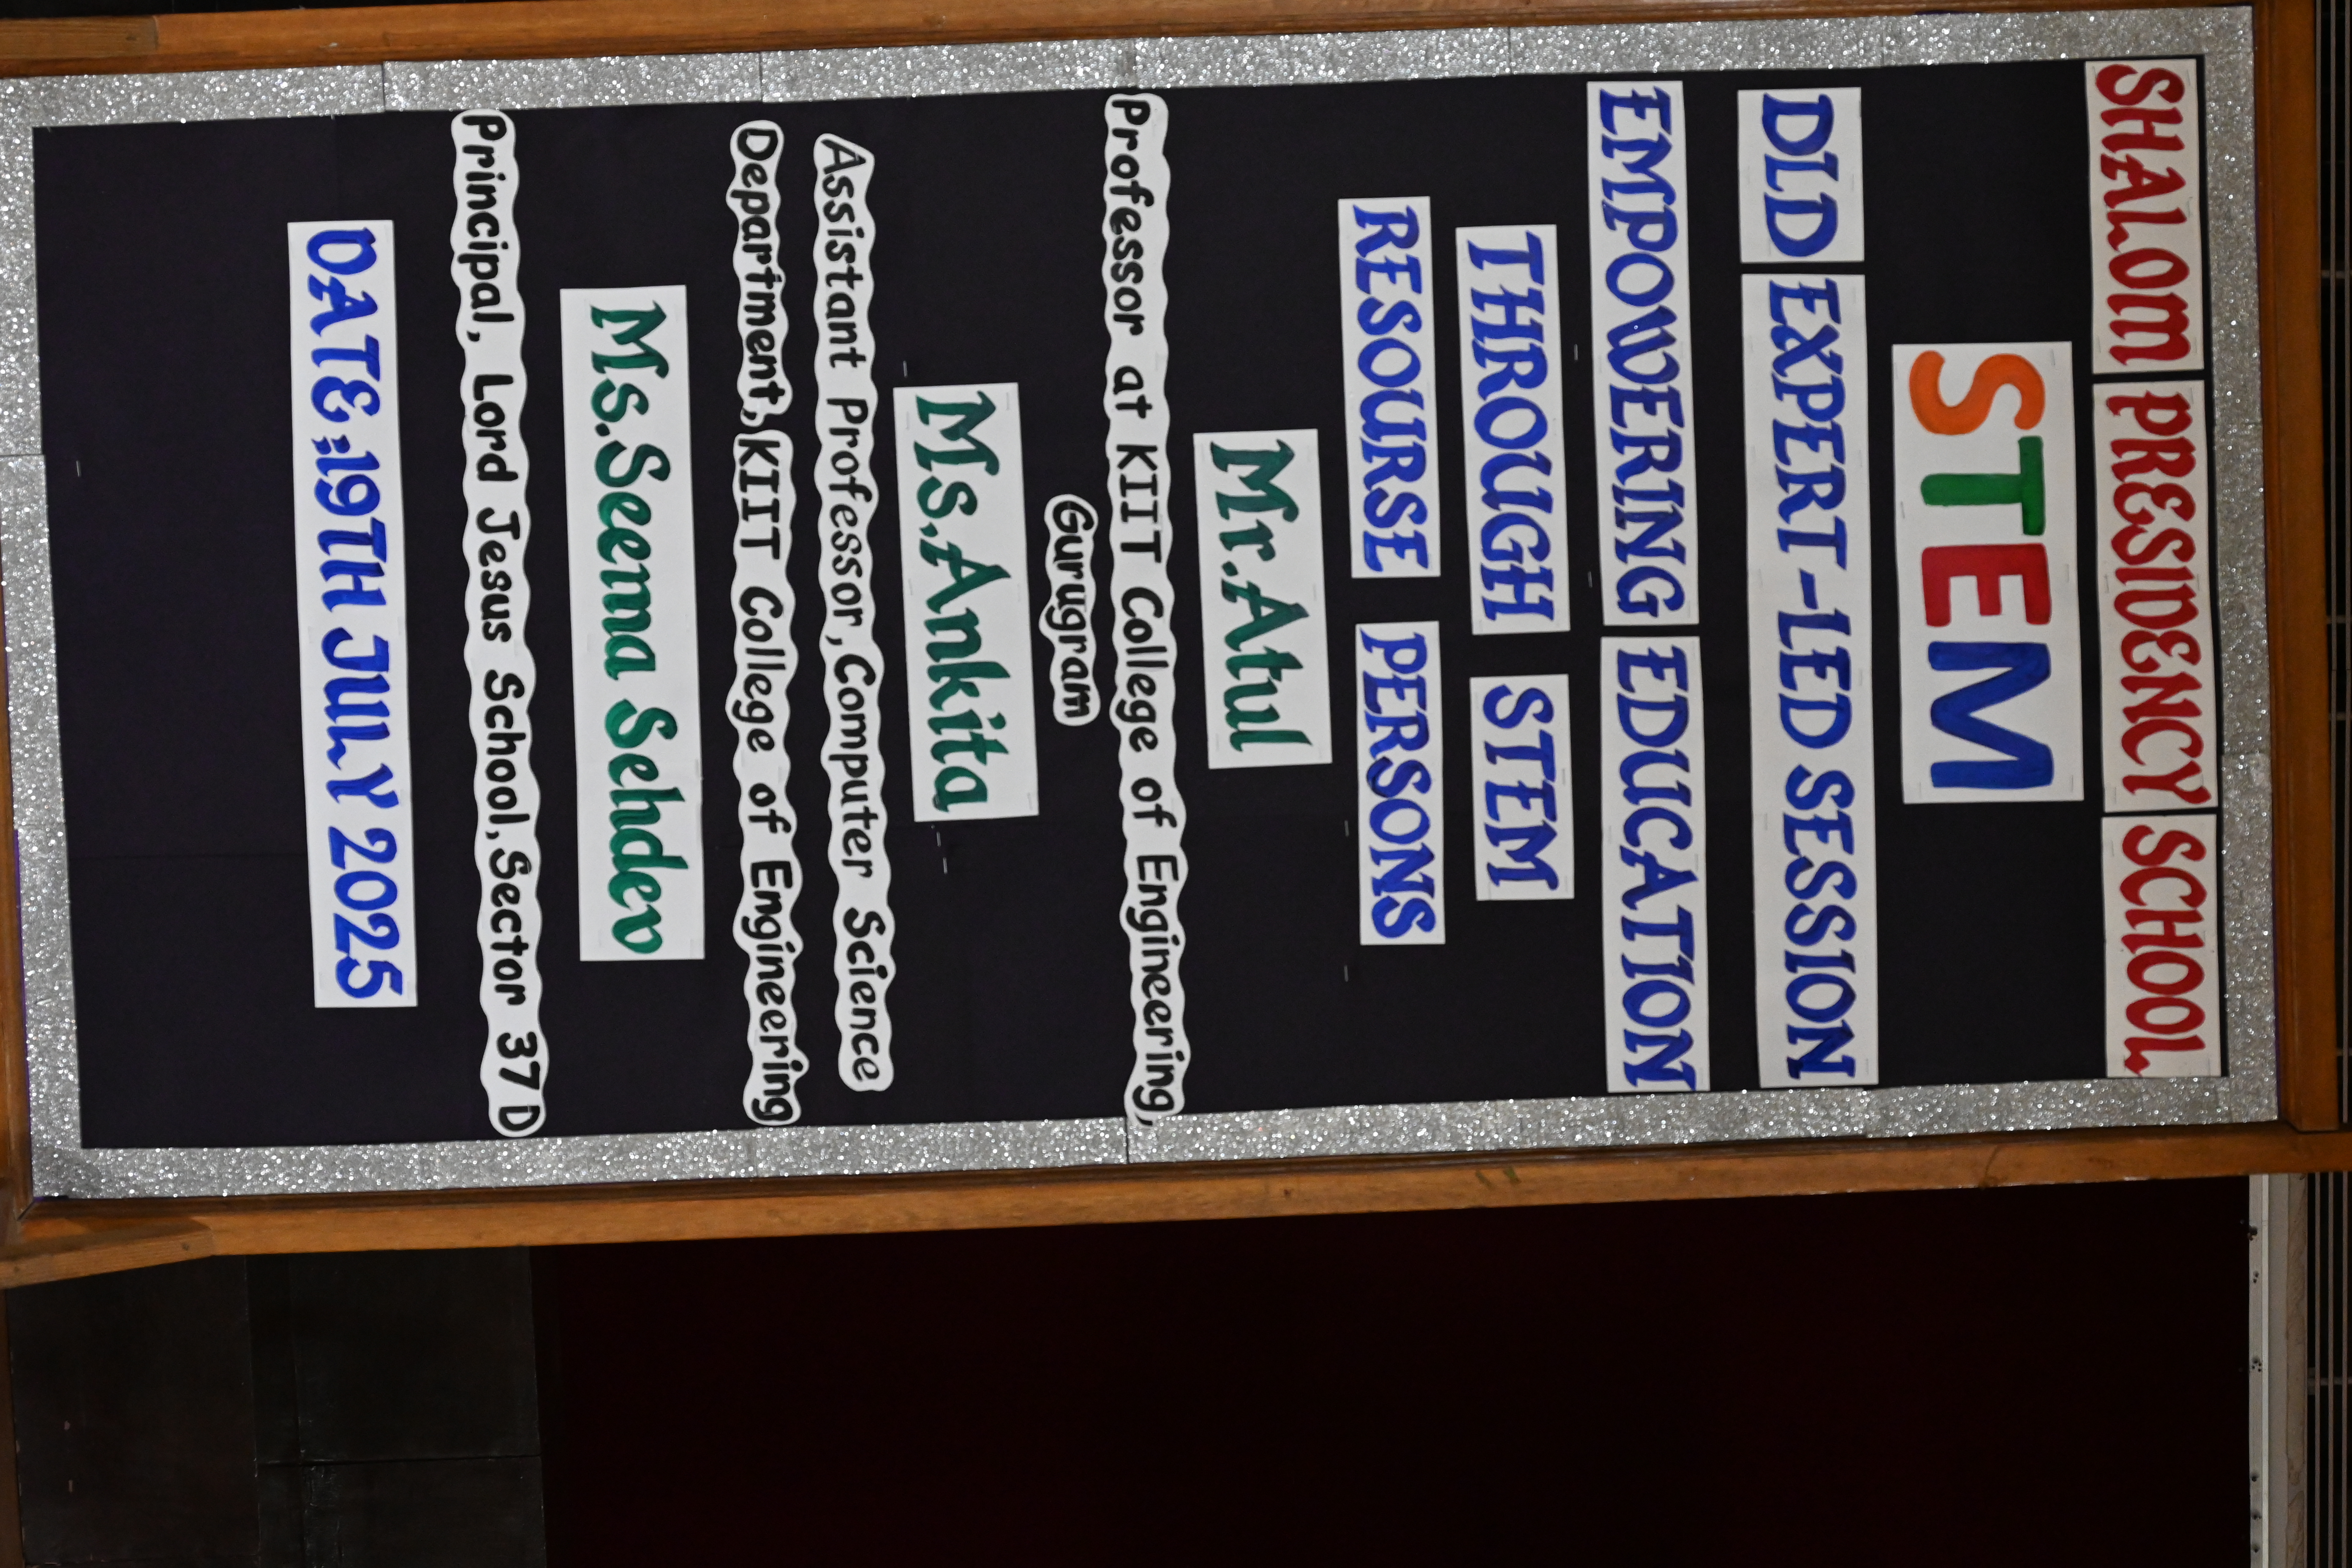 SHALOM PRESIDENCY SCHOOL
STEM
DLD EXPERT-LED SESSION
EMPOWERING EDUCATION
THROUGH STEM
RESOURSE PERSONS
Mr.Atul
Professor at KIIT College of Engineering,
Gurugram
Ms.Ankita
Assistant Professor,Computer Science
Department,KIIT College of Engineering
Ms.Seema Sehdev
Principal, Lord Jesus School,Sector 37D
DATE:19TH JULY 2025